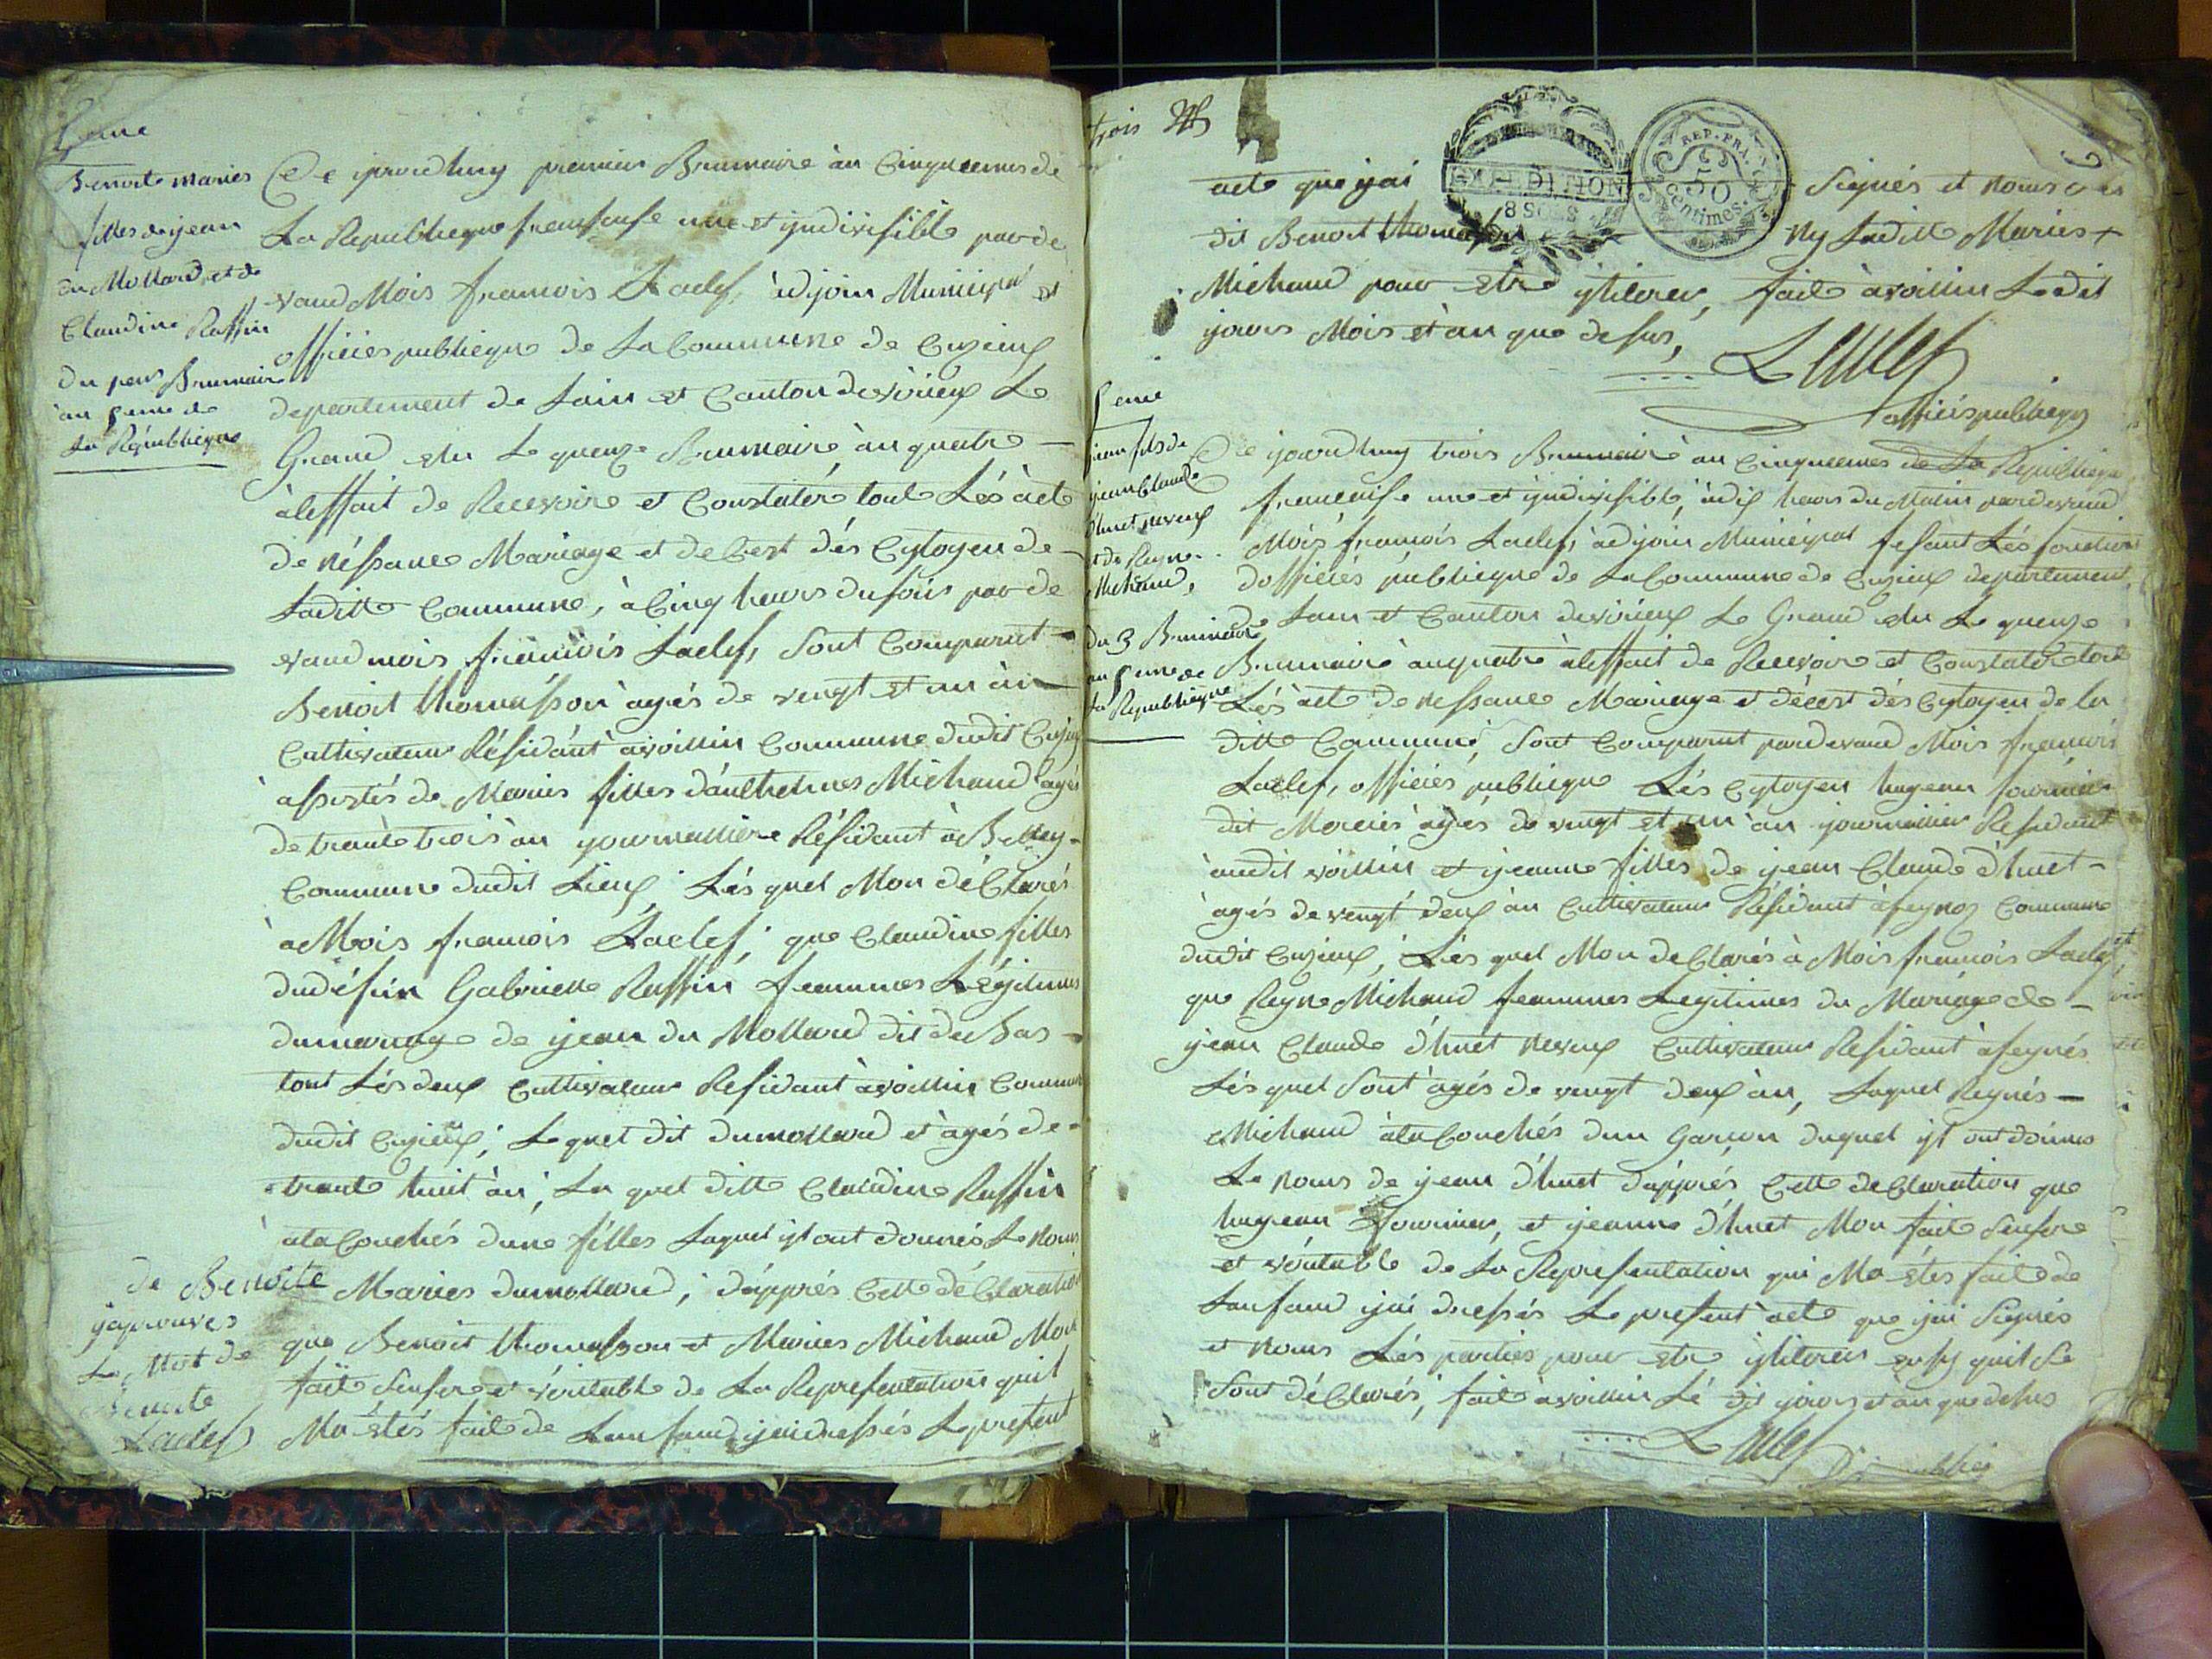 Benoite maries
filles de jean
du Mollard, et de
Claudine Ruffin
du per Brumaire
àn 5eme de
La Républiqne
Ce ijourdhuy premier Brumaire àn Cinquiemes de
La Republiegue franséuse une et yndivisiblle par de
vand Mois francois Laclef, àdjoin Municipal et
officiés publiegue de La Commune de Cuzieux
departement de Lain et Canton de virieux Le
Grand elu Le quenze Brumaire àn quatre
àleffait de Recevoire et Constatér tout Lés àcte
de néssance Mariage et de Cest dés Cytoyen de
Laditte Commune, à Cinq heurs du soir par de
vand mois francois Laclef, Sont Comparut
Benoit thomasson àgés de vengt et un àn
Cultivateur Résidant àvoillin Commune dudit Cuzieux
àssistés de Maries filles d'anthelmes Michaud àgés
de trante trois àn yournallière Résidant à Belley
Commune dudit Lieux; Lés quel Mon déClarés
à Mois francois Laclef; que Claudine filles
du défun Gabrielle Ruffin feammes Légitimes
du mariage de ijean du Mollard dit du bas
tout Lés deux Cultivateur Residant àvoillin Commune
dudit Cuzieux; Le quel dit dumollard et àgés de
trante huit àn; La quel ditte Claudine Ruffin
àlaCouchés dune filles Laquel yl ont donnés Le nom
de Benoite Maries dumollard; d'apprés Cette déClaration
que Benoit thomasson et Maries Michaud Mon
faite Sensere et véritable de La Representation quil
Ma étés fait de Lansand ijai dressés Le present
ijaprouves
Le Mot de
Benoite
Laclef
trois
EXPEDITION
8 SOLS
REP. FRA.
50
Centimes
acte que ijai Signés et noms Le
dit Benoit thomasson ny Laditte Maries
Michaud pour etre ylliterer, fait àvoillin Ledit
jours Mois et àn que desus,
Laclef
officiés publiegue
5eme
jean fils de
ijean Claude
d'huet neveux
et de Reyne
Michaud,
du 3 Brumaire
àn 5eme de
La Republiegue
Ce ijourdhuy trois Brumaire àn Cinquiemes de La Republiegue
francaise une et yndivisible, àdix heurs du Matin pardevand
Mois francois Laclef, àdjoin Municipal fesant Lés fonction
d'officiés publiegue de La Commune de Cuzieux departement
de Lain et Canton de virieux Le Grand elu Le quenze
Brumaire àn quatre àleffait de Recevoire et Constatér tout
Lés àcte de nessance Mariage et décest dés Cytoyen de la
ditte Commune; Sont Comparut pardevand Mois francois
Laclef, officiés publiegue Lés Cytoyen hugeun fournier
dit Merciés àgés de vengt et un àn ijournallier Residant
àudit voillin et ijeanne filles de ijean Claude d'huet
àgés de vengt deux àn Cultivateur Résidant àfeynoz Commune
dudit Cuzieux; Lés quel Mon deClarés à Mois francois Laclef,
que Reyne Michaud feammes Legitimes du Mariage de
ijean Claude d'huet neveux Cultivateur Residant àfeynés
Lés quel Sont àgés de vengt deux àn, Laquel Reynés
Michaud àlaCouchés dun Garcon duquel yl ont donnés
Le noms de ijean d'huet d'apprés Cette deClaration que
hugeun fournier, et ijeanne d'huet Mon faite Sensere
et véritable de La Representation qui Ma étés fait de
Lansand ijai dressés Le present àcte que ijai Signés
et noms Lés parties pour etre ylliterer quil Se
Sont déClarés; fait àvoillin Lé dit jours et àn que desus
Laclef